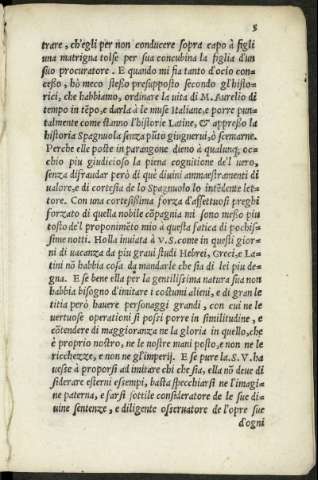 5
trare, ch'egli per non conducere sopra capo à figli
una matrigna tolse per sua concubina la figlia d'un
suo procuratore. E quando mi fia tanto d'ocio con-
cesso, hò meco stesso presupposto secondo gl'histo-
rici, che habbiamo, ordinare la uita di M. Aurelio di
tempo in tēpo, e darla à le muse Italiane, e porre pun-
talmente come stanno l'historie Latine, & appresso la
historia Spagnuola senza pūto giugnerui, ò scemarne.
Perche elle poste in parangone dieno à qualunq; oc-
chio piu giudicioso la piena cognitione de'l uero,
senza difraudar però di que diuini ammaestramenti di
ualore, e di cortesia de lo Spagnuolo lo intēdente let-
tore. Con una cortesissima forza d'affettuosi preghi
forzato di quella nobile cōpagnia mi sono messo piu
tosto de'l proponimēto mio à questa fatica di pochis-
sime notti. Holla inuiata à V.S. come in questi gior-
ni di uacanza da piu graui studi Hebrei, Greci, e La-
tini nō habbia cosa da mandarle che sia di lei piu de-
gna. E se bene ella per la gentilissima natura sua non
habbia bisogno d'imitare i costumi alieni, e di gran le
titia però hauere personaggi grandi, con cui ne le
uertuose operationi si possi porre in similitudine, e
cōtendere di maggioranza ne la gloria in quello, che
è proprio nostro, ne le nostre mani posto, e non ne le
ricchezze, e non ne gl'imperij. E se pure la.S.V. ha
uesse à proporsi ad imitare chi che sia, ella nō deue di
siderare esterni essempi, basta specchiarsi ne l'imagi-
ne paterna, e farsi sottile consideratore de le sue di-
uine sentenze, e diligente osseruatore de l'opre sue
d'ogni